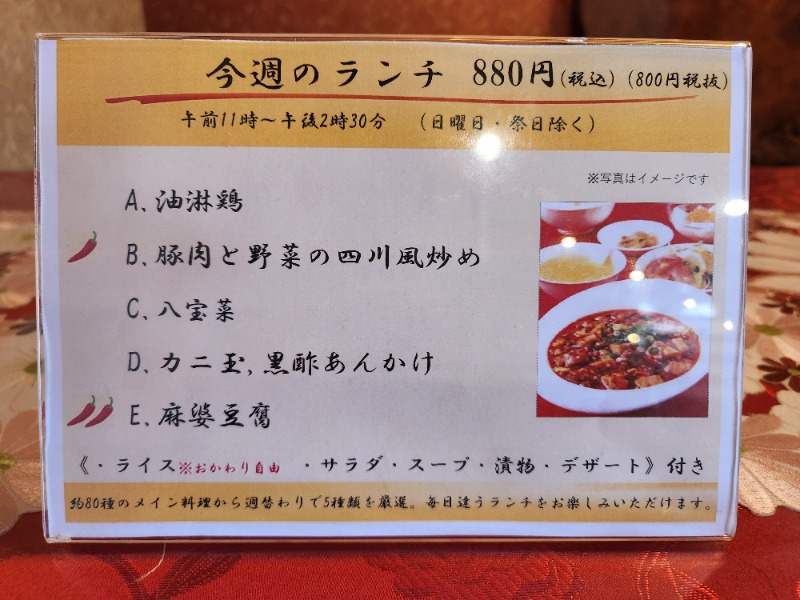 今週のランチ 880円(税込) (800円税抜)
午前11時～午後2時30分 (日曜日・祭日除く)
※写真はイメージです
A、油淋鶏
B、豚肉と野菜の四川風炒め
C、八宝菜
D、カニ玉,黒酢あんかけ
E、麻婆豆腐
《・ライス※おかわり自由 ・サラダ・スープ・漬物・デザート》付き
約80種のメイン料理から週替わりで5種類を厳選。毎日違うランチをお楽しみいただけます。